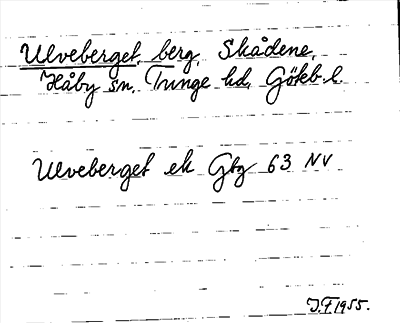 Ulveberget, berg, Skådene,
Håby sn, Tunge hd, Göteb. l.
Ulveberget ek Gbg 63 NV
J.F. 1955.